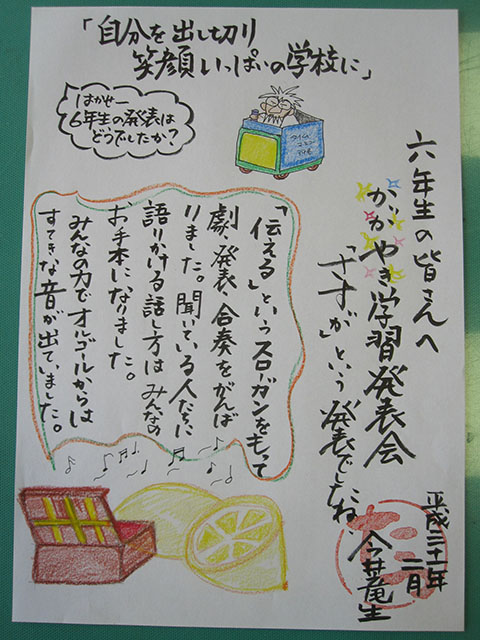 「自分を出し切り
笑顔いっぱいの学校に」
はかせー
6年生の発表は
どうでしたか？
タイム
マシン
六年生の皆さんへ
かがやき学習発表会
「さすが」という発表でしたね
平成二十一年
二月
今井竜生
「伝える」というスローガンをもって
劇・発表・合奏をがんば
りました。聞いている人たちに
語りかける話し方はみんなの
お手本になりました。
みんなの力でオルゴールからは
すてきな音が出ていました。